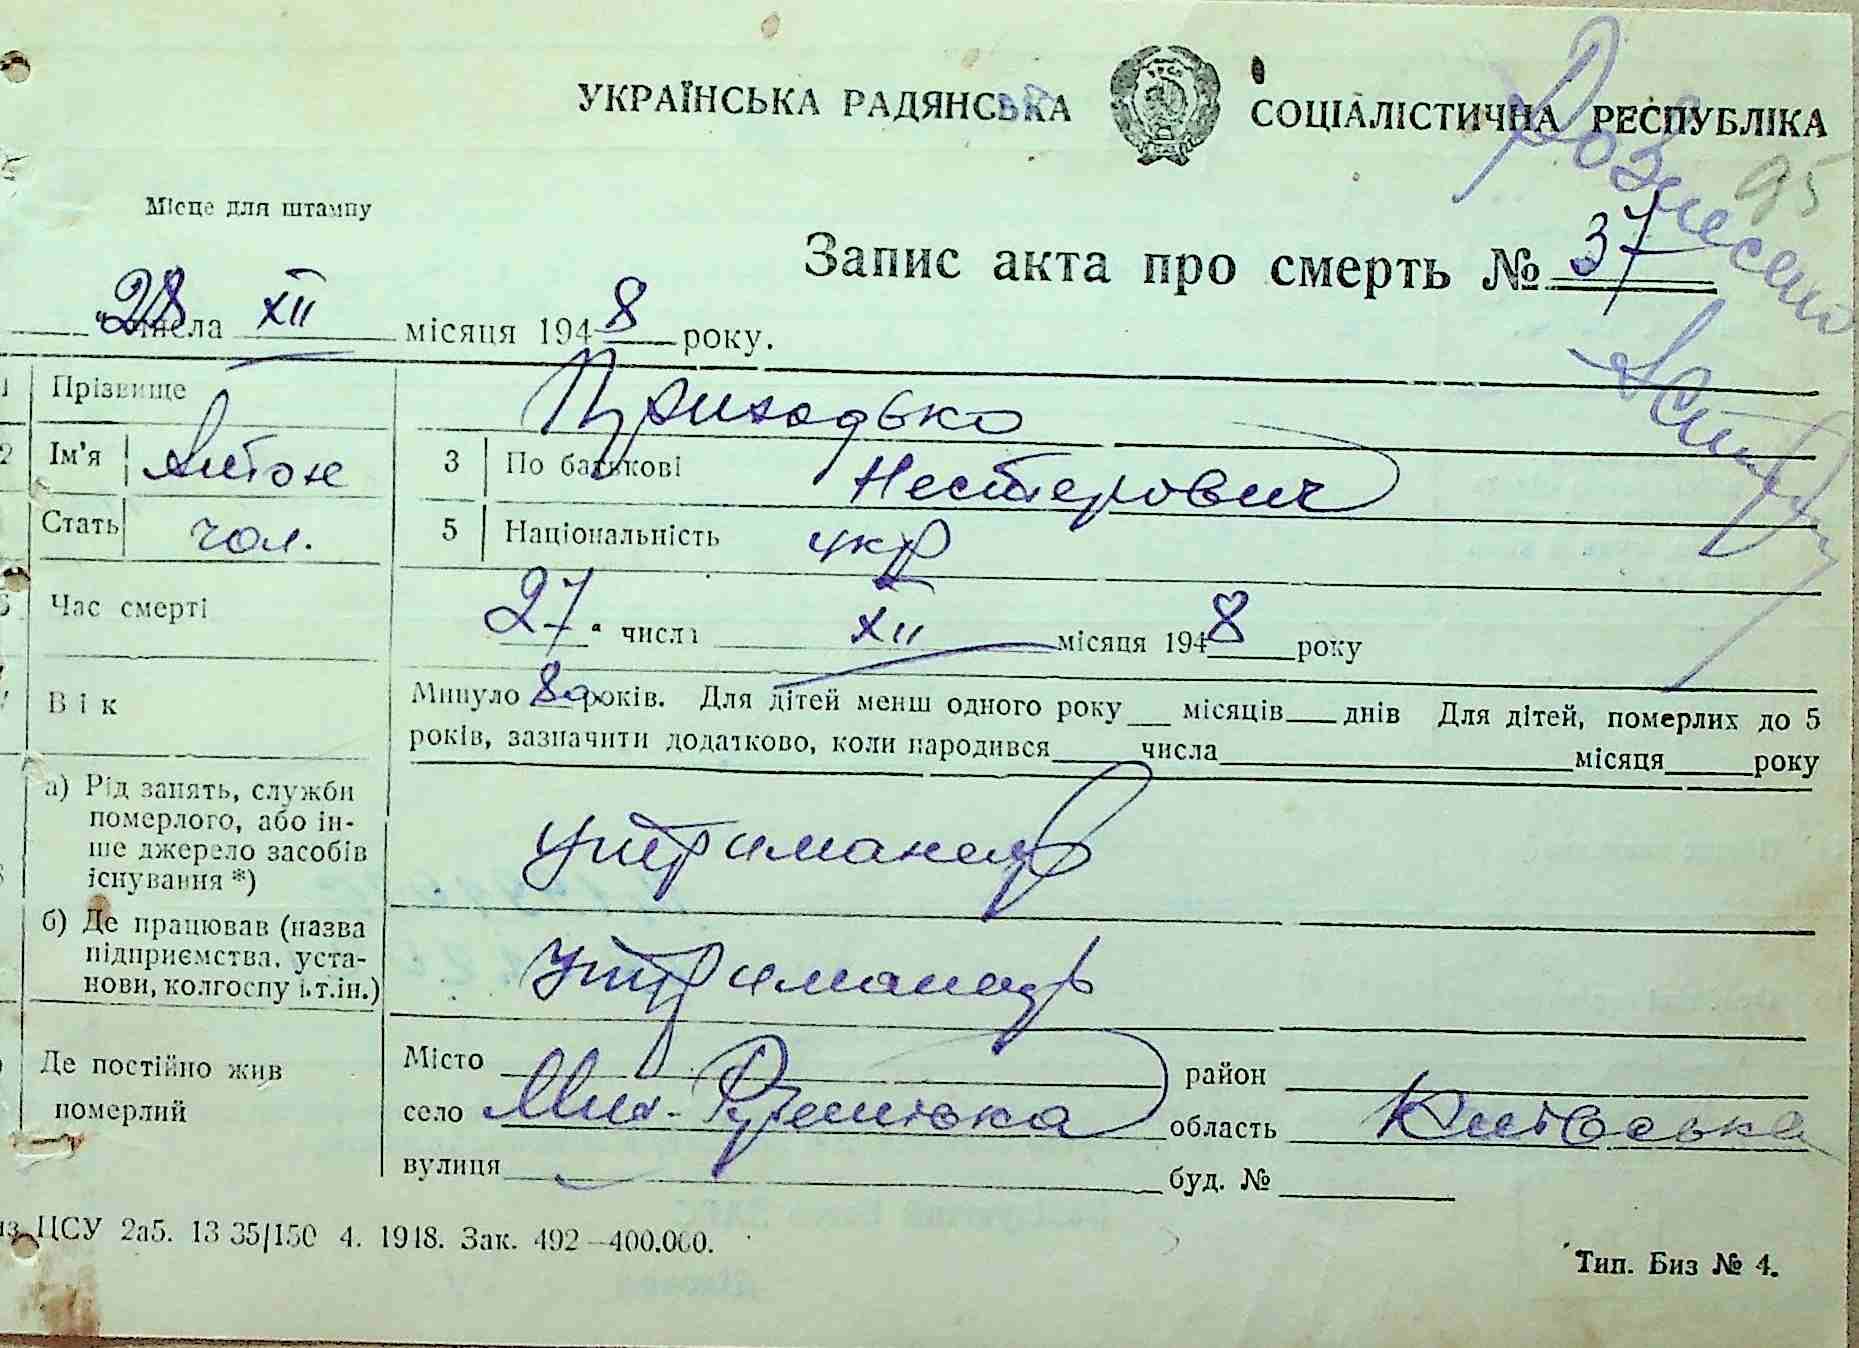 УКРАЇНСЬКА РАДЯНСЬКА СОЦІАЛІСТИЧНА РЕСПУБЛІКА
Рознесено
95
Місце для штампу
Запис акта про смерть № 37
"28 числа XII місяця 1948 року.
1 Прізвище Приходько
2 Ім'я Антон 3 По батькові Нестерович
Стать чол. 5 Національність укр
Час смерті 27 " числа XII місяця 1948 року
Вік Минуло 80 років. Для дітей менш одного року місяців днів Для дітей, померлих до 5
років, зазначити додатково, коли народився числа місяця року
а) Рід занять, служби
померлого, або ін-
ше джерело засобів
існування *) утриманець
б) Де працював (назва
підприємства, уста-
нови, колгоспу і.т.ін.) утриманець
Де постійно жив
померлий
Місто район
село Мих-Рубежівка область Київська
вулиця буд. №
ЦСУ 2а5. 13 35/150 4. 1918. Зак. 492—400.000.
Тип. Биз № 4.